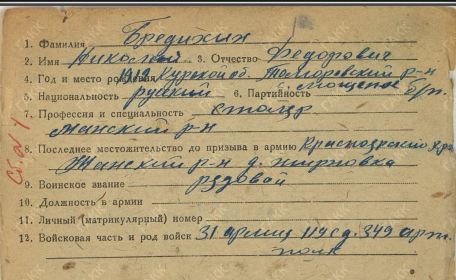 1. Фамилия Бредихин
2. Имя Николай 3. Отчество Федорович
4. Год и место рождения 1912 Курской об. Томаровский р-н
с. Мощеное
5. Национальность русский 6. Партийность б/п.
7. Профессия и специальность столяр
Манский р-н
8. Последнее местожительство до призыва в армию Красноярский кр.
Манский р-н д. Жировка
9. Воинское звание рядовой
10. Должность в армии
11. Личный (матрикулярный) номер
12. Войсковая часть и род войск 31 армия 119 сд. 349 арт.
полк